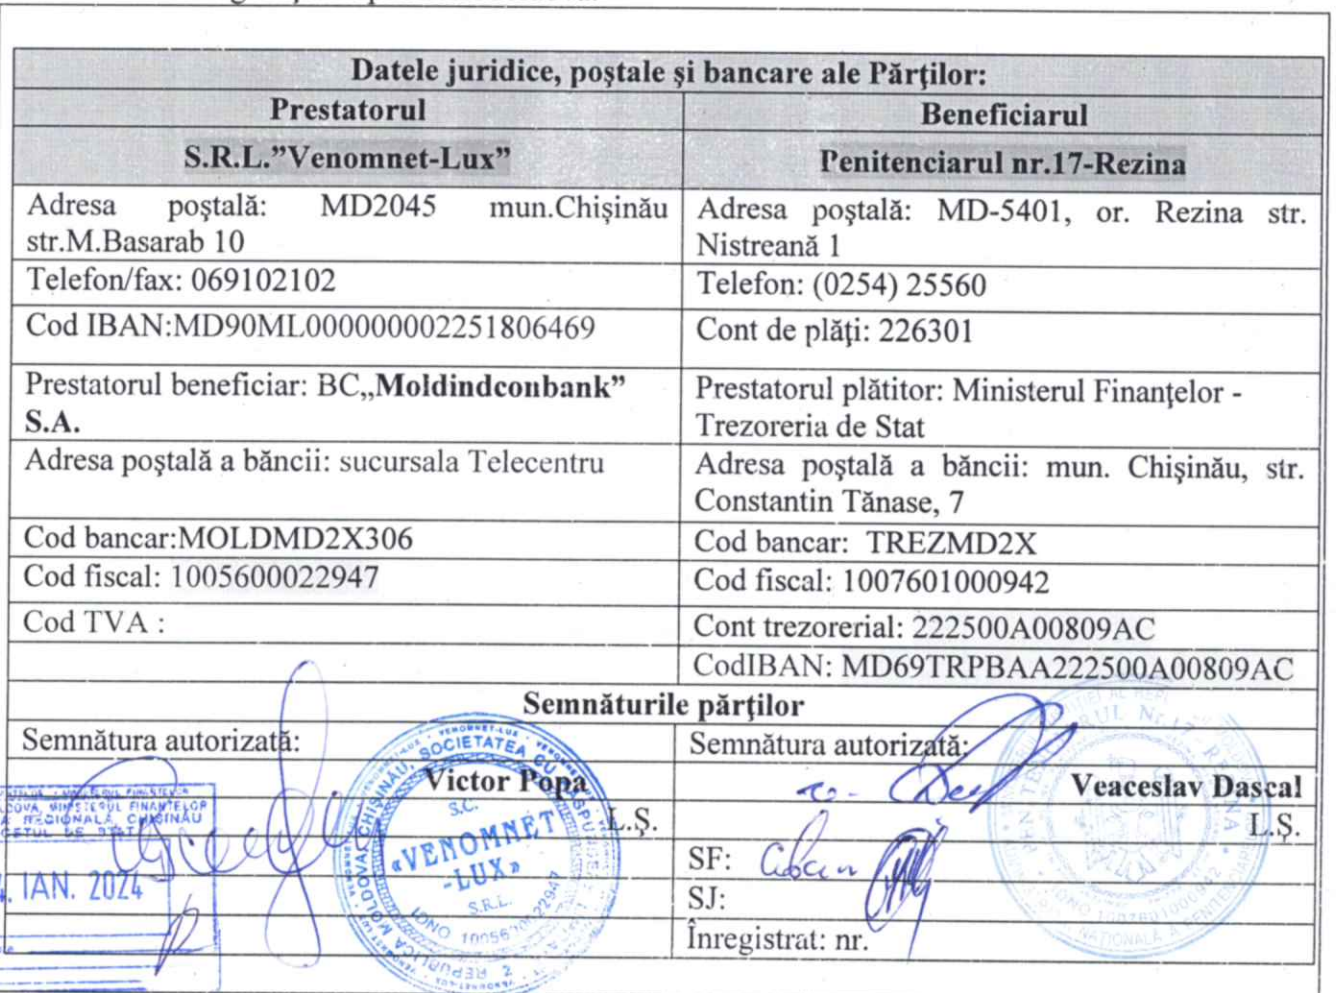 Datele juridice, poştale şi bancare ale Părţilor:
Prestatorul
Beneficiarul
S.R.L.”Venomnet-Lux”
Penitenciarul nr.17-Rezina
Adresa poştală: MD2045 mun.Chişinău
str.M.Basarab 10
Adresa poştală: MD-5401, or. Rezina str.
Nistreană 1
Telefon/fax: 069102102
Telefon: (0254) 25560
Cod IBAN:MD90ML000000002251806469
Cont de plăţi: 226301
Prestatorul beneficiar: BC„Moldindconbank”
S.A.
Prestatorul plătitor: Ministerul Finanţelor -
Trezoreria de Stat
Adresa poştală a băncii: sucursala Telecentru
Adresa poştală a băncii: mun. Chişinău, str.
Constantin Tănase, 7
Cod bancar:MOLDMD2X306
Cod bancar: TREZMD2X
Cod fiscal: 1005600022947
Cod fiscal: 1007601000942
Cod TVA :
Cont trezorerial: 222500A00809AC
CodIBAN: MD69TRPBAA222500A00809AC
Semnăturile părţilor
Semnătura autorizată:
Semnătura autorizată:
Victor Popa
Veaceslav Dascal
L.Ş.
L.Ş.
SF:
SJ:
Înregistrat: nr.
MINISTERUL FINANTELOR
REGIONALĂ CHIŞINĂU
IAN. 2024
S.C.
«VENOMNET
-LUX»
S.R.L.